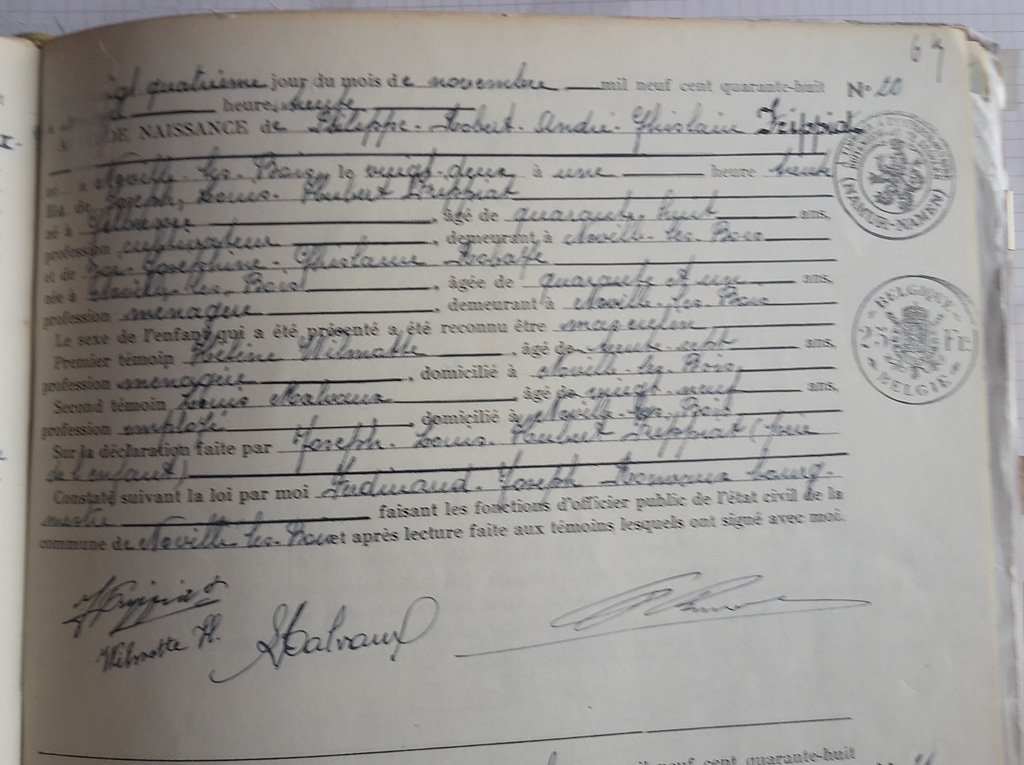 67
quatrième jour du mois de novembre mil neuf cent quarante-huit Nº 20
heure
DE NAISSANCE de Philippe-Robert-André-Ghislain Trippiat
à Noville-les-Bois, le vingt-deux à une heure trente
de Joseph-Louis-Houbert Trippiat
né à , âgé de quarante-huit ans,
profession cultivateur, demeurant à Noville-les-Bois
et de Joséphine-Ghislaine
née à Noville-les-Bois, âgée de quarante et un ans,
profession ménagère, demeurant à Noville-les-Bois
Le sexe de l'enfant qui a été présenté a été reconnu être masculin
Premier témoin Hélène Wilmotte, âgé de ans,
profession ménagère, domicilié à Noville-les-Bois
Second témoin Malvaux, âgé de vingt-neuf ans,
profession employé, domicilié à Noville-les-Bois
Sur la déclaration faite par Joseph-Louis-Houbert Trippiat (père
de l'enfant)
Constaté suivant la loi par moi Ferdinand-Joseph bourg-
mestre faisant les fonctions d'officier public de l'état civil de la
commune de Noville-les-Bois et après lecture faite aux témoins lesquels ont signé avec moi.
Trippiat
Wilmotte H.
Malvaux
(NAMUR-NAMEN)
BELGIQUE
25 Fr
BELGIË
mil neuf cent quarante-huit